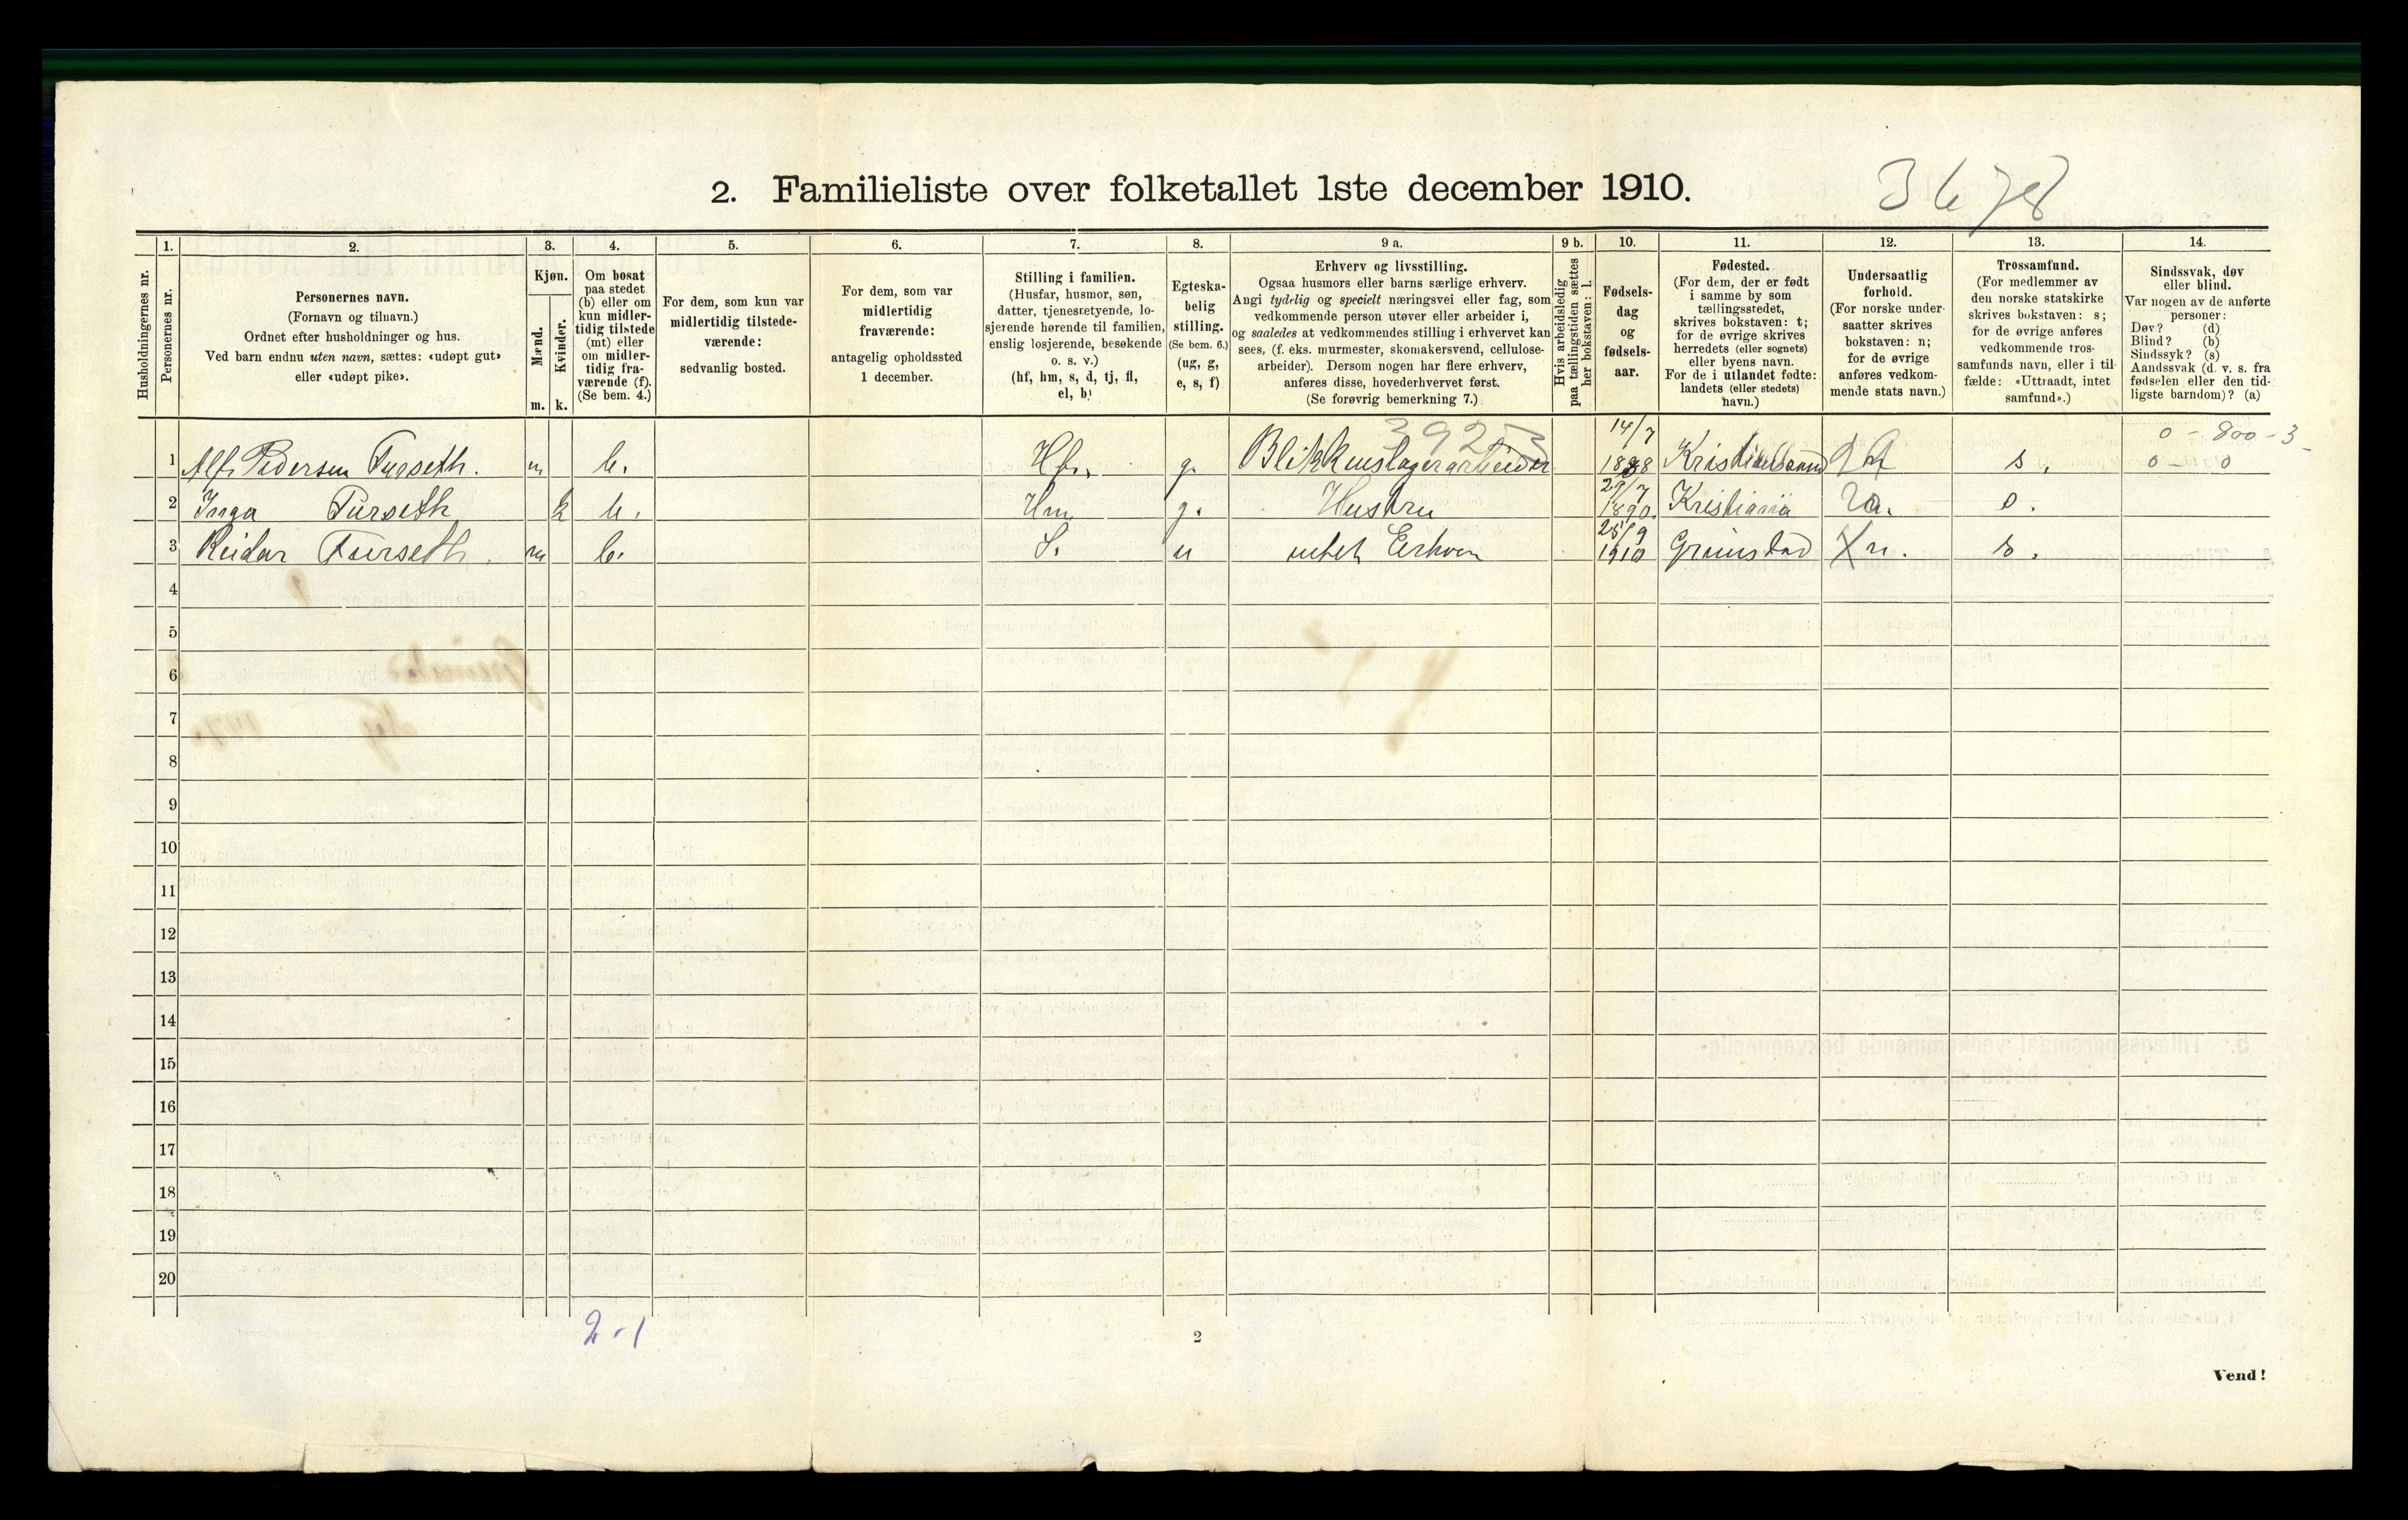 2. Familieliste over folketallet 1ste december 1910.
3678
Husholdningernes nr.
1.
Personernes nr.
2.
Personernes navn.
(Fornavn og tilnavn.)
Ordnet efter husholdninger og hus.
Ved barn endnu uten navn, sættes: «udøpt gut»
eller «udøpt pike».
3.
Kjøn.
Mænd.
m.
Kvinder.
k.
4.
Om bosat
paa stedet
(b) eller om
kun midler-
tidig tilstede
(mt) eller
om midler-
tidig fra-
værende (f).
(Se bem. 4.)
5.
For dem, som kun var
midlertidig tilstede-
værende:
sedvanlig bosted.
6.
For dem, som var
midlertidig
fraværende:
antagelig opholdssted
1 december.
7.
Stilling i familien.
(Husfar, husmor, søn,
datter, tjenestetyende, lo-
sjerende hørende til familien,
enslig losjerende, besøkende
o. s. v.)
(hf, hm, s, d, tj, fl,
el, b)
8.
Egteska-
belig
stilling.
(Se bem. 6.)
(ug, g,
e, s, f)
9 a.
Erhverv og livsstilling.
Ogsaa husmors eller barns særlige erhverv.
Angi tydelig og specielt næringsvei eller fag, som
vedkommende person utøver eller arbeider i,
og saaledes at vedkommendes stilling i erhvervet kan
sees, (f. eks. murmester, skomakersvend, cellulose-
arbeider). Dersom nogen har flere erhverv,
anføres disse, hovederhvervet først.
(Se forøvrig bemerkning 7.)
9 b.
Hvis arbeidsledig
paa tællingstiden sættes
her bokstaven: l.
10.
Fødsels-
dag
og
fødsels-
aar.
11.
Fødested.
(For dem, der er født
i samme by som
tællingsstedet,
skrives bokstaven: t;
for de øvrige skrives
herredets (eller sognets)
eller byens navn.
For de i utlandet fødte:
landets (eller stedets)
navn.)
12.
Undersaatlig
forhold.
(For norske under-
saatter skrives
bokstaven: n;
for de øvrige
anføres vedkom-
mende stats navn.)
13.
Trossamfund.
(For medlemmer av
den norske statskirke
skrives bokstaven: s;
for de øvrige anføres
vedkommende tros-
samfunds navn, eller i til-
fælde: «Uttraadt, intet
samfund».)
14.
Sindssvak, døv
eller blind.
Var nogen av de anførte
personer:
Døv? (d)
Blind? (b)
Sindssyk? (s)
Aandssvak (d. v. s. fra
fødselen eller den tid-
ligste barndom)? (a)
3923 14/7 0 - 800 - 3 -
1 Alf Pedersen Furseth. m b. Hf. g. Blikkenslagerarbeider 1888 Kristiansand s. 0 - 0
2 Inga Furseth k b. Hm g. Hustru 29/7 1890. Kristiania s.
3 Reidar Furseth. m b. S. u intet Erhver 25/9 1910 Grimstad n. s.
4
5
6
7
8
9
10
11
12
13
14
15
16
17
18
19
20
2-1
2
Vend!